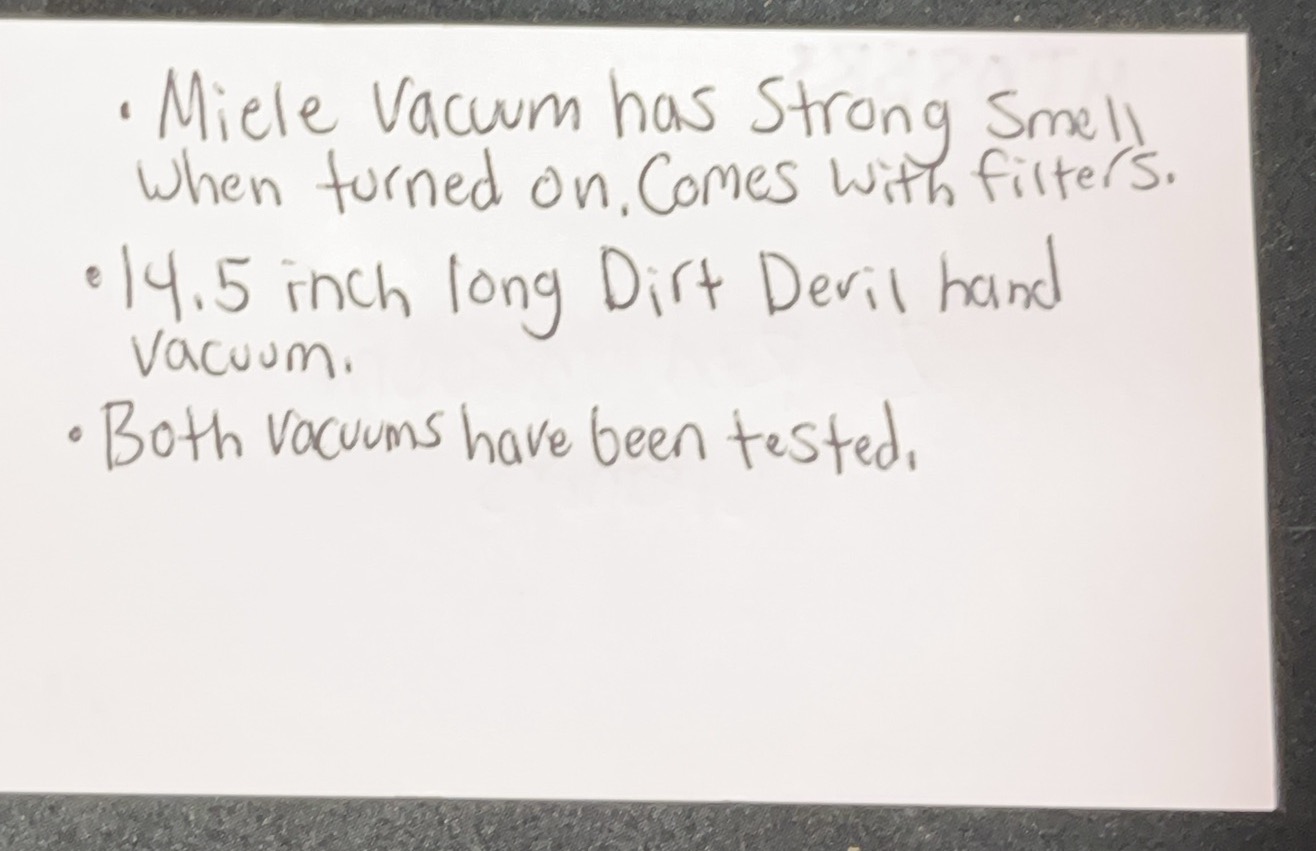 • Miele Vacuum has Strong Smell
When turned on. Comes With filters.
• 14.5 inch long Dirt Devil hand
Vacuum.
• Both Vacuums have been tested.